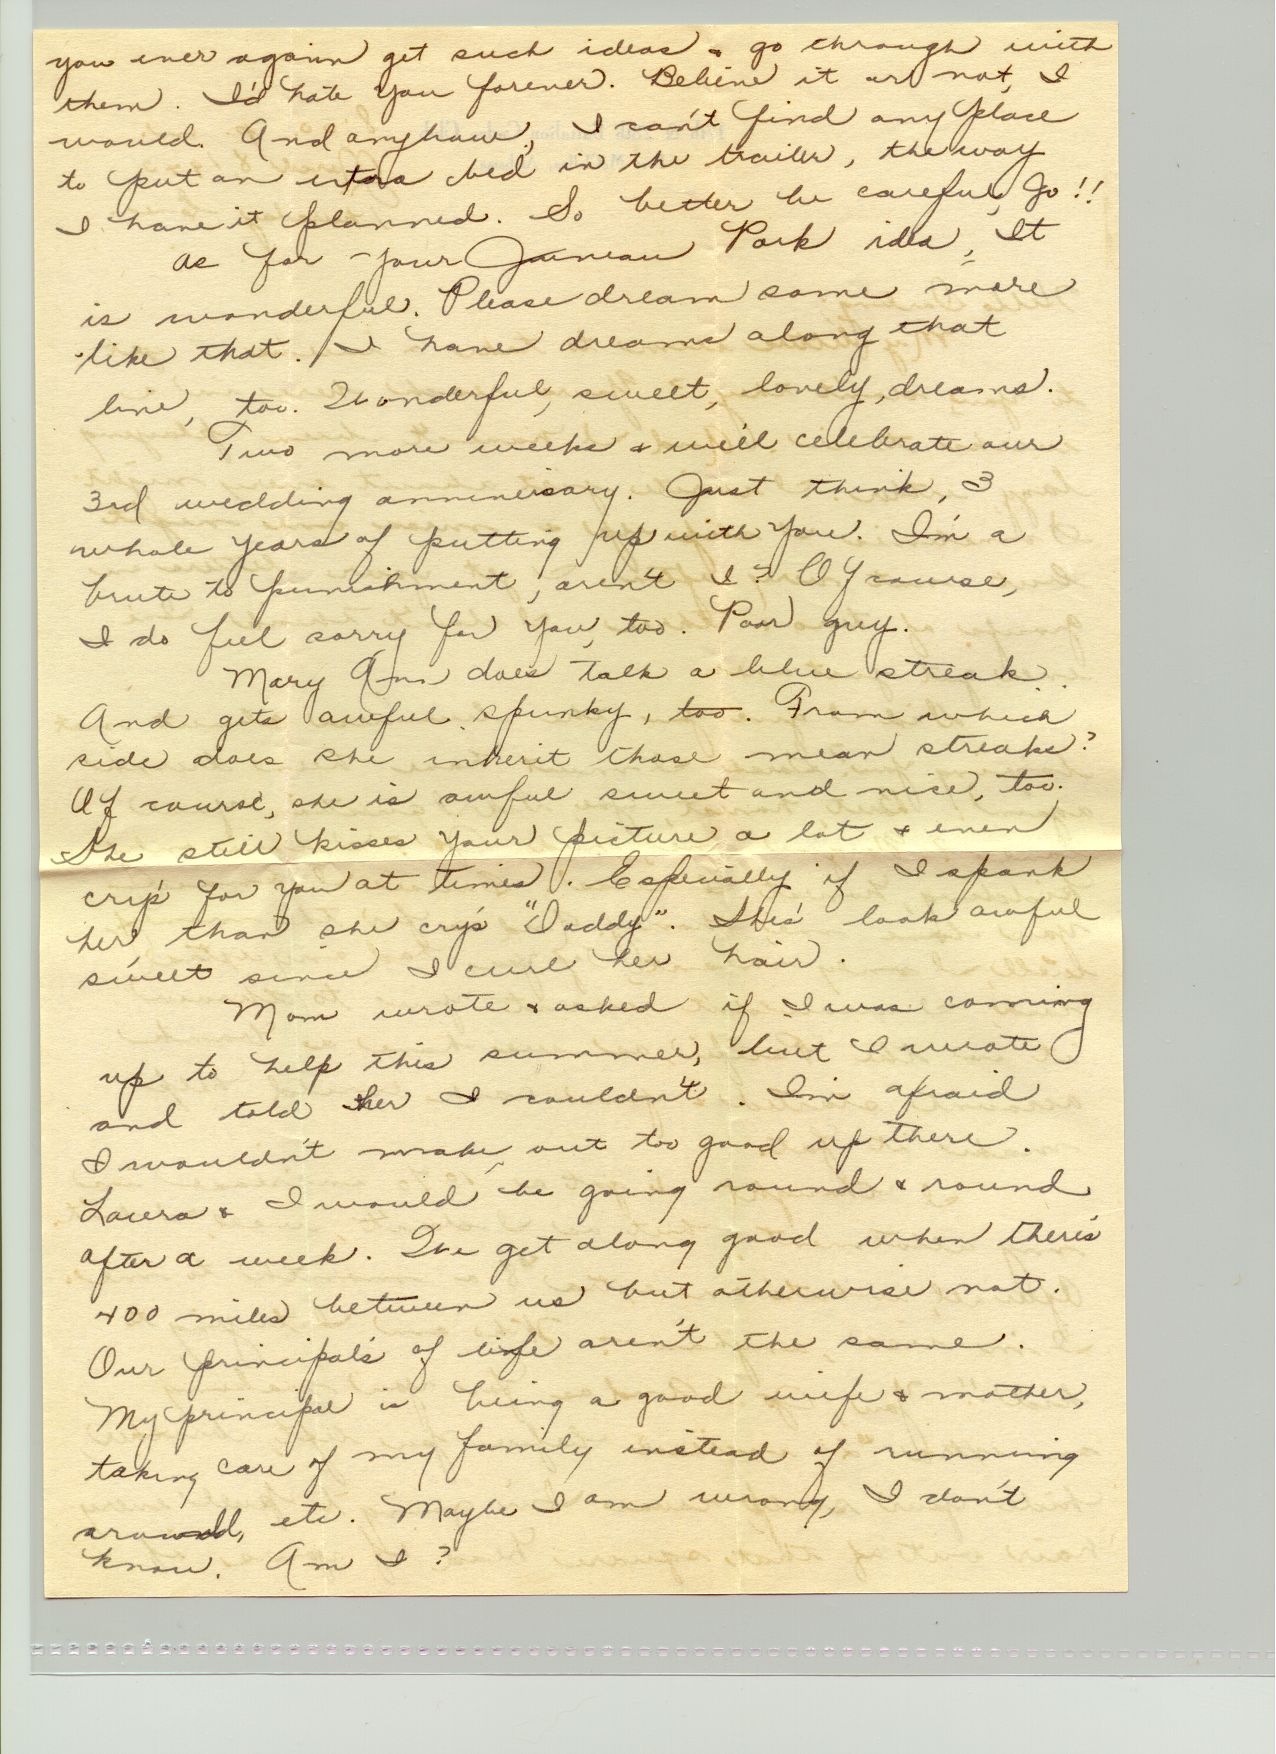 you ever again get such ideas & go through with
them. I'd hate you forever. Believe it or not, I
would. And anyhow, I can't find any place
to put an extra bed in the trailer, the way
I have it planned. So better be careful, Jo!!
As for your Juneau Park idea, It
is wonderful. Please dream some more
like that. I have dreams along that
line, too. Wonderful, sweet, lovely, dreams.
Two more weeks & we'll celebrate our
3rd wedding anniversary. Just think, 3
whole years of putting up with you. I'm a
brute to punishment, aren't I? Of course,
I do feel sorry for you, too. Poor guy.
Mary Ann does talk a blue streak.
And gets awful spunky, too. From which
side does she inherit those mean streaks?
Of course, she is awful sweet and nice, too.
She still kisses your picture a lot & even
cry's for you at times. Especially if I spank
her than she cry's "Daddy". She's look awful
sweet since I curl her hair.
Mom wrote & asked if I was coming
up to help this summer, but I wrote
and told her I couldn't. I'm afraid
I wouldn't make out too good up there.
Laura & I would be going round & round
after a week. We get along good when there's
400 miles between us but otherwise not.
Our principal's of life aren't the same.
My principal is being a good wife & mother,
taking care of my family instead of running
around, etc. Maybe I am wrong, I don't
know. Am I?